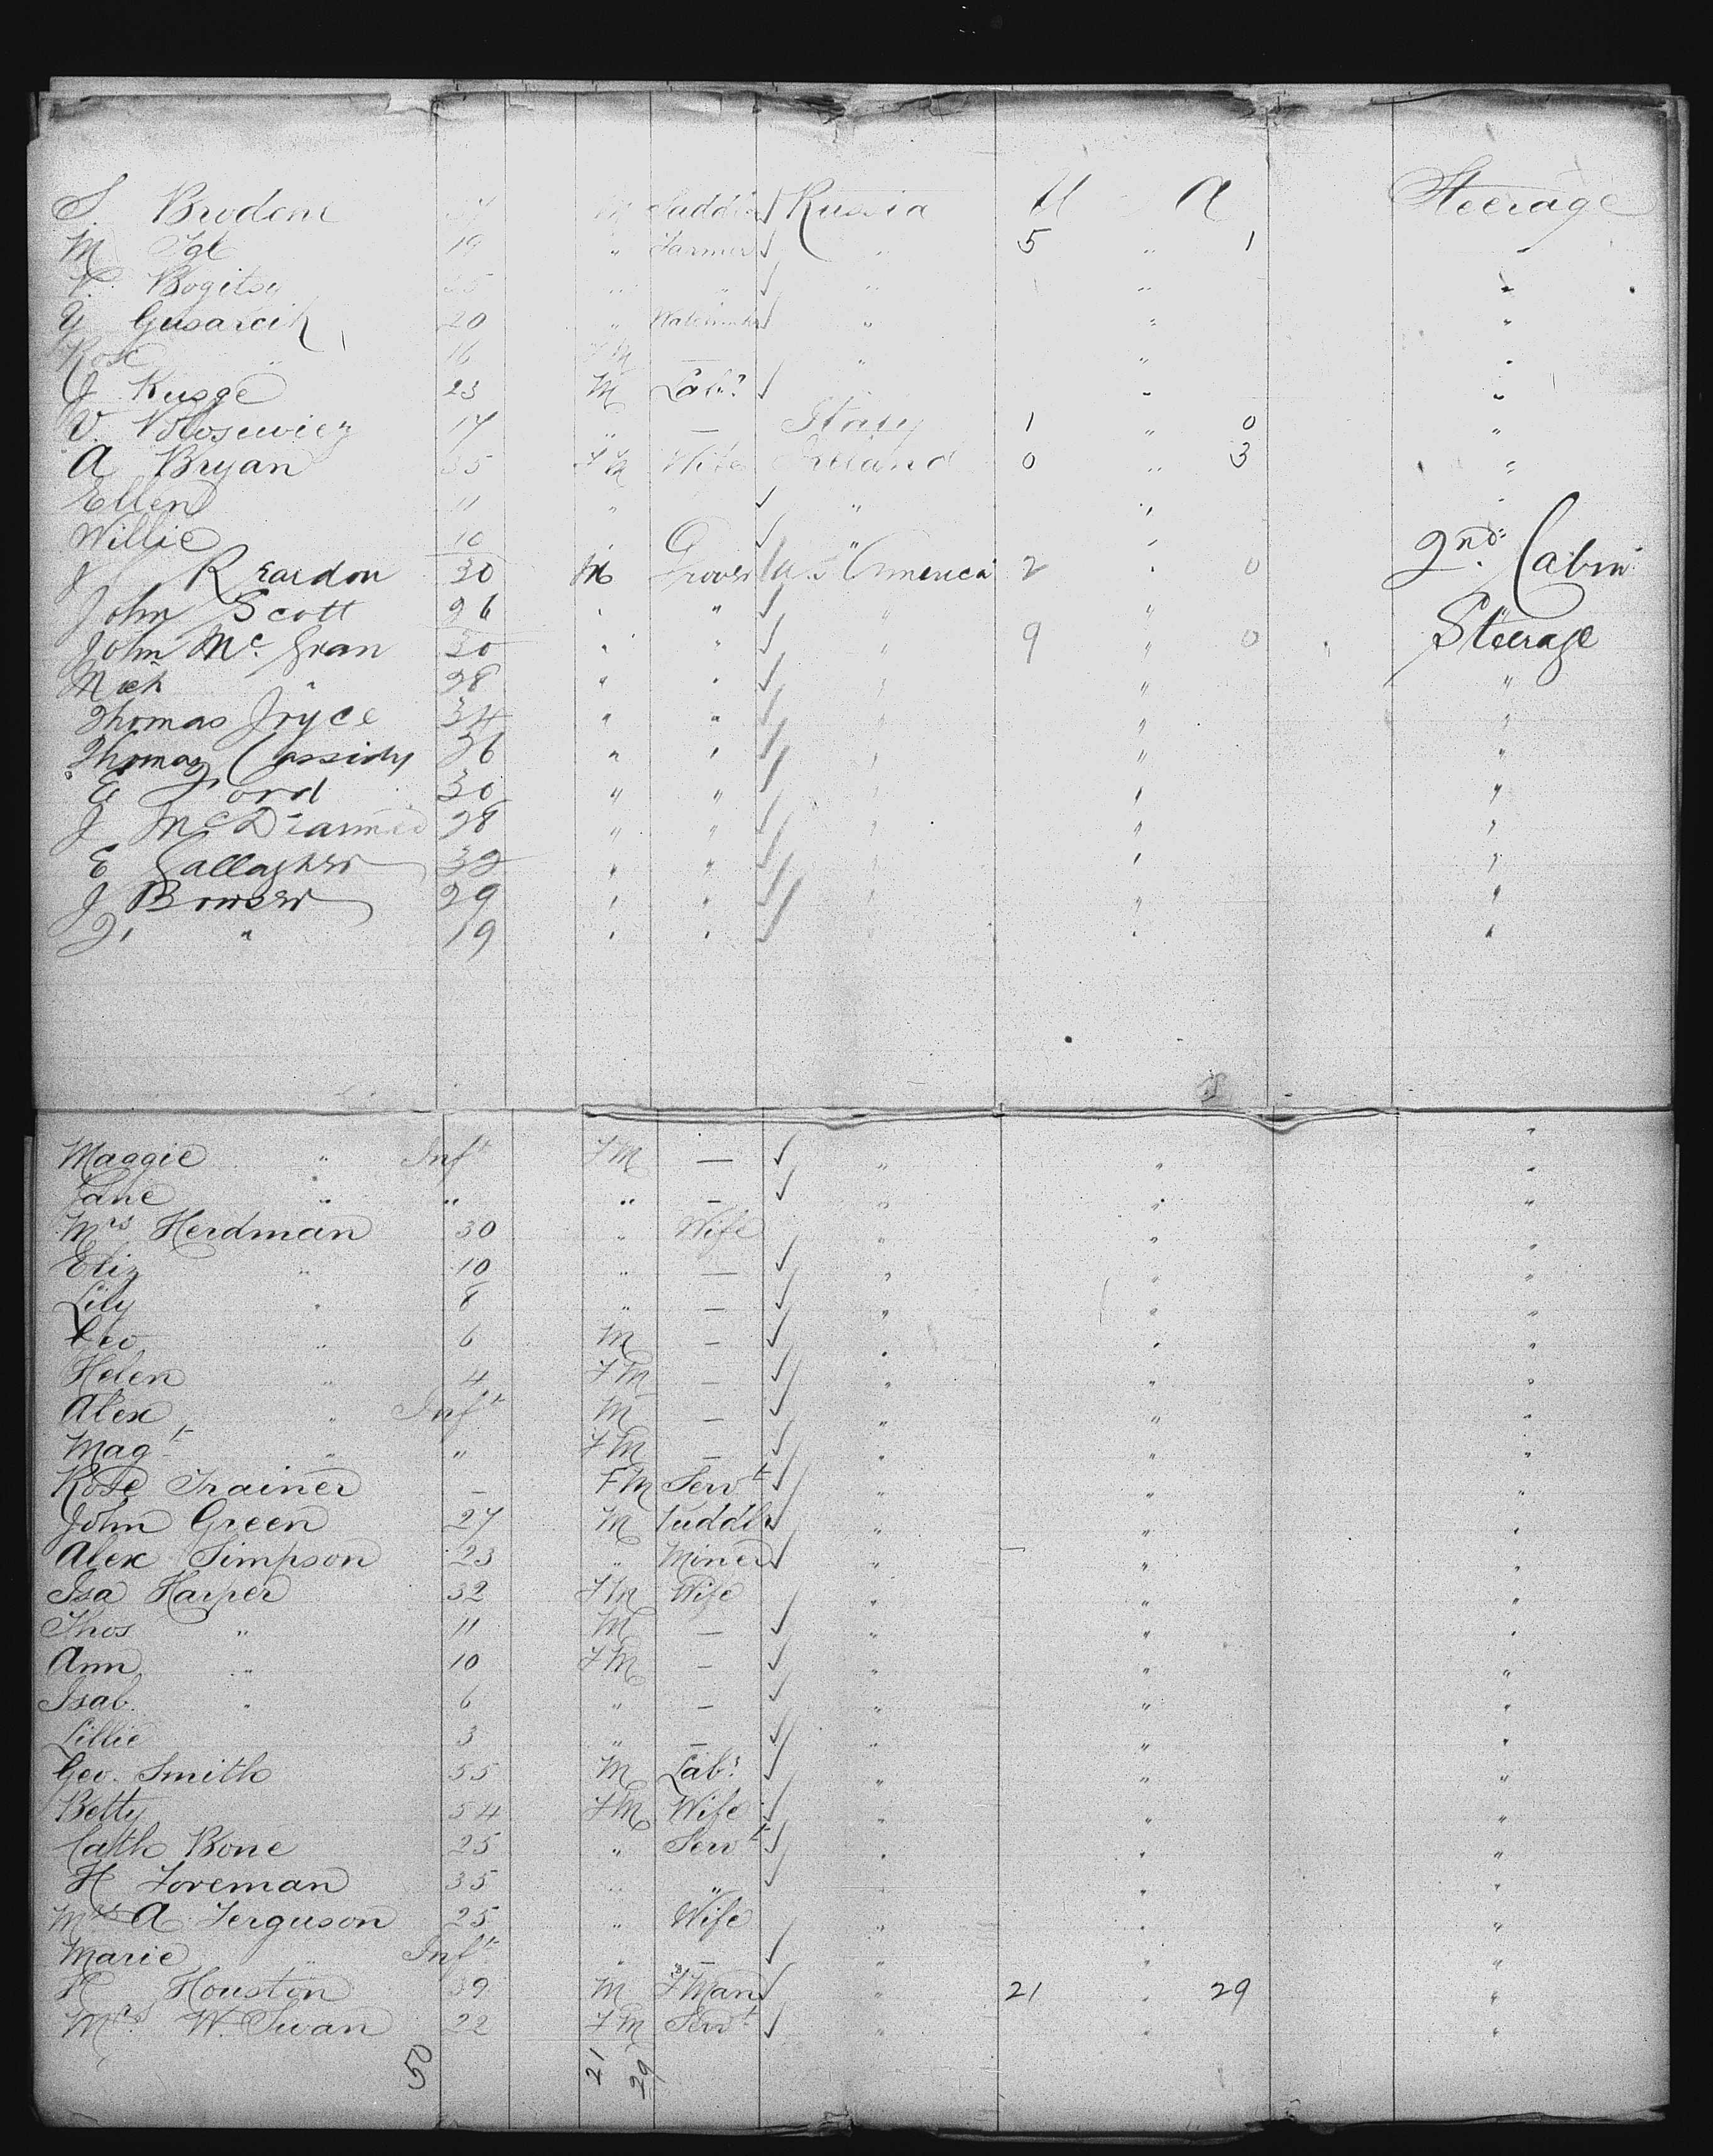 S. Brodene 34 M Saddler ✓ Russia U A Steerage
M Igl 19 " Farmer ✓ " 5 " 1 "
V. Bogitsy 35 " " ✓ " " "
Y Gusarcik 20 " ✓ " " "
Rose " 16 FM — " " "
J Kusge 23 M Labr ✓ " "
V. Volosewicz 17 " — Italy 1 " 0 "
A Bryan 35 FM Wife Ireland 0 " 3 "
Ellen 11 " ✓ " " "
Willie 10 ✓ " "
J Reardon 30 M Drover U.S America 2 " 0 2nd. Cabin
John Scott 26 " " ✓ " " "
John Mc. Gran 30 " " ✓ " 9 " 0 Steerage
Mich " 28 " " ✓ " " "
Thomas Joyce 34 " " ✓ " " "
Thomas Cassidy 36 " " ✓ " " "
E Ford 30 " " ✓ " " "
J 28 " " ✓ " " "
E Gallagher 32 " " ✓ " " "
J Bowser 29 " " ✓ " " "
J. " 19 " " ✓ " "
Maggie " Inft FM — ✓ " " "
Jane " " " — ✓ " " "
Mrs Herdman 30 " Wife " " "
Eliz " 10 " — ✓ " " "
Lily " 8 " — ✓ " " "
Geo " 6 M — ✓ " " "
Helen " 4 FM — ✓ " " "
Alex " Inft M — ✓ " " "
Magt " " FM — ✓ " " "
Rose Trainer — FM Servt ✓ " " "
John Green 27 M Puddler ✓ " " "
Alex Simpson 23 " Miner ✓ " " "
Isa Harper 32 FM Wife " " "
Thos " 11 M — ✓ " " "
Ann " 10 FM — ✓ " " "
Isab. " 6 " — ✓ " " "
Lillie 3 " — ✓ " " "
Geo. Smith 55 M Labr ✓ " " "
Betty 54 FM Wife ✓ " " "
Cath Bone 25 " Servt ✓ " " "
H Foreman 35 " " ✓ " " "
Mrs A. Ferguson 25 " Wife " " "
Marie " Inft " — ✓ " " "
H Houston 39 M FMan ✓ " 21 " 29 "
Mrs. W. Swan 22 FM Servt ✓ " " "
50 21 29